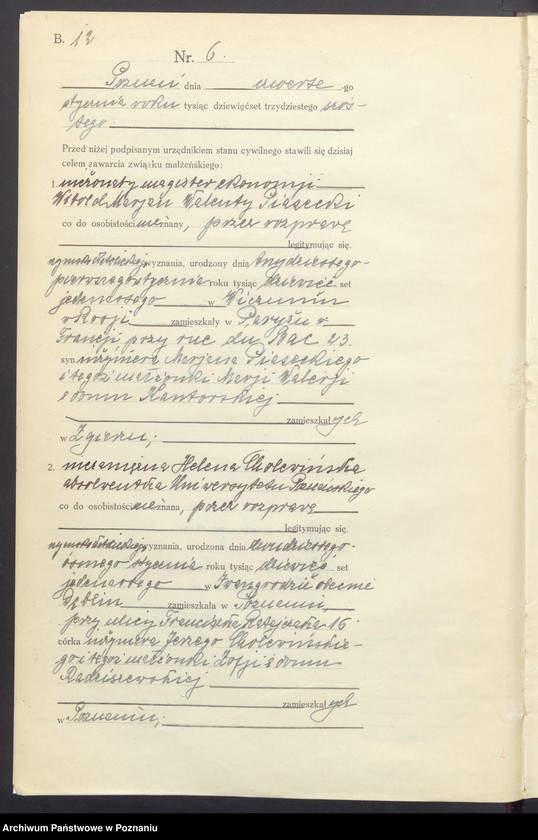 B. 12
Nr. 6.
Poznań dnia czwartego
stycznia roku tysiąc dziewięćset trzydziestego szós-
tego.
Przed niżej podpisanym urzędnikiem stanu cywilnego stawili się dzisiaj
celem zawarcia związku małżeńskiego:
1. nieżonaty magister ekonomji
Witold Marjan Walenty Piasecki
co do osobistości nieznany, przez rozprawę
legitymując się,
rzymsko katolickiego wyznania, urodzony dnia trzydziestego-
pierwszego stycznia roku tysiąc dziewięć set
jedenastego w
w Rosji zamieszkały w Paryżu w
Francji przy rue du Bac 23.
syn inżyniera Marjana Piaseckiego
i tegoż małżonki Marji Walerji
z domu Kantorskiej
zamieszkałych
w Zgierzu;
2. niezamężna Helena Cholewińska
absolwentka Uniwersytetu Poznańskiego
co do osobistości nieznana, przez rozprawę
legitymując się,
rzymsko katolickiego wyznania, urodzona dnia dwudziestego-
ósmego stycznia roku tysiąc dziewięć set
jedenastego w Iwangrodzie obecnie
Dęblin zamieszkała w Poznaniu,
przy ulicy Franciszka Ratajczaka 16.
córka inżyniera Jerzego Cholewińskie-
go i tegoż małżonki Zofji z domu
Radziszewskiej
zamieszkałych
w Poznaniu;
Archiwum Państwowe w Poznaniu